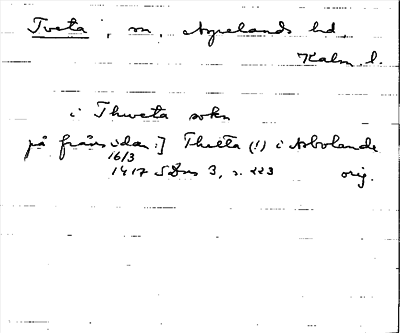 Tveta, sn, Aspelands hd.
Kalm. l.
i Thweta sokn
på frånsidan:] Thueta (!) i Asbolande
16/3
1417 SDns 3, s. 223 orig.